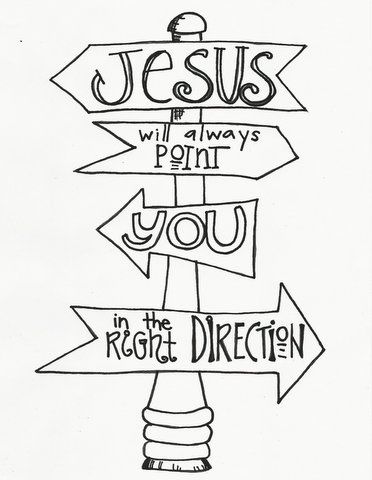 JESUS
will always
POINT
YOU
in the
RIGHT DIRECTION